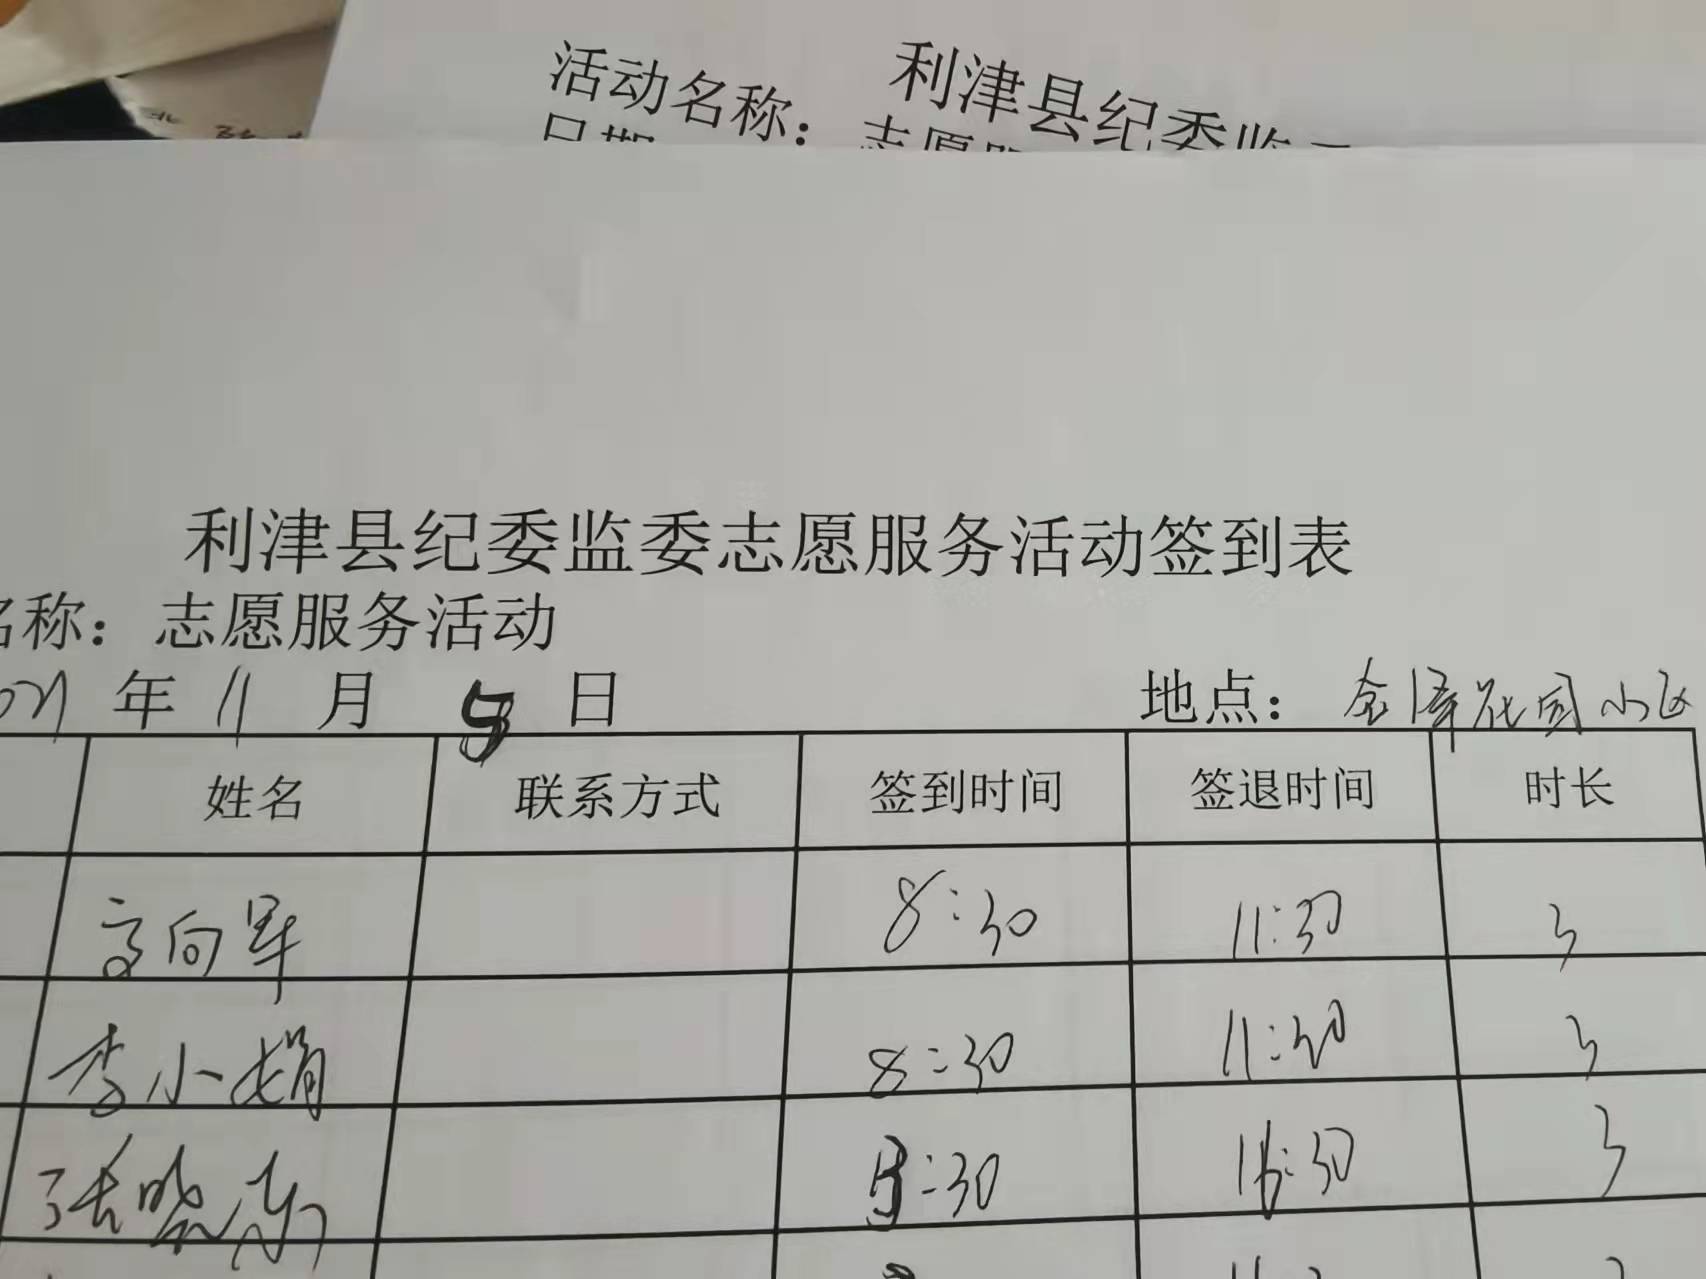 利津县纪委监
活动名称：志愿
日期
利津县纪委监委志愿服务活动签到表
名称：志愿服务活动
年 11 月 5 日 地点：金泽花园小区
姓名 联系方式 签到时间 签退时间 时长
高向军 8:30 11:30 3
李小娟 8:30 11:30 3
张晓 :30 :30 3